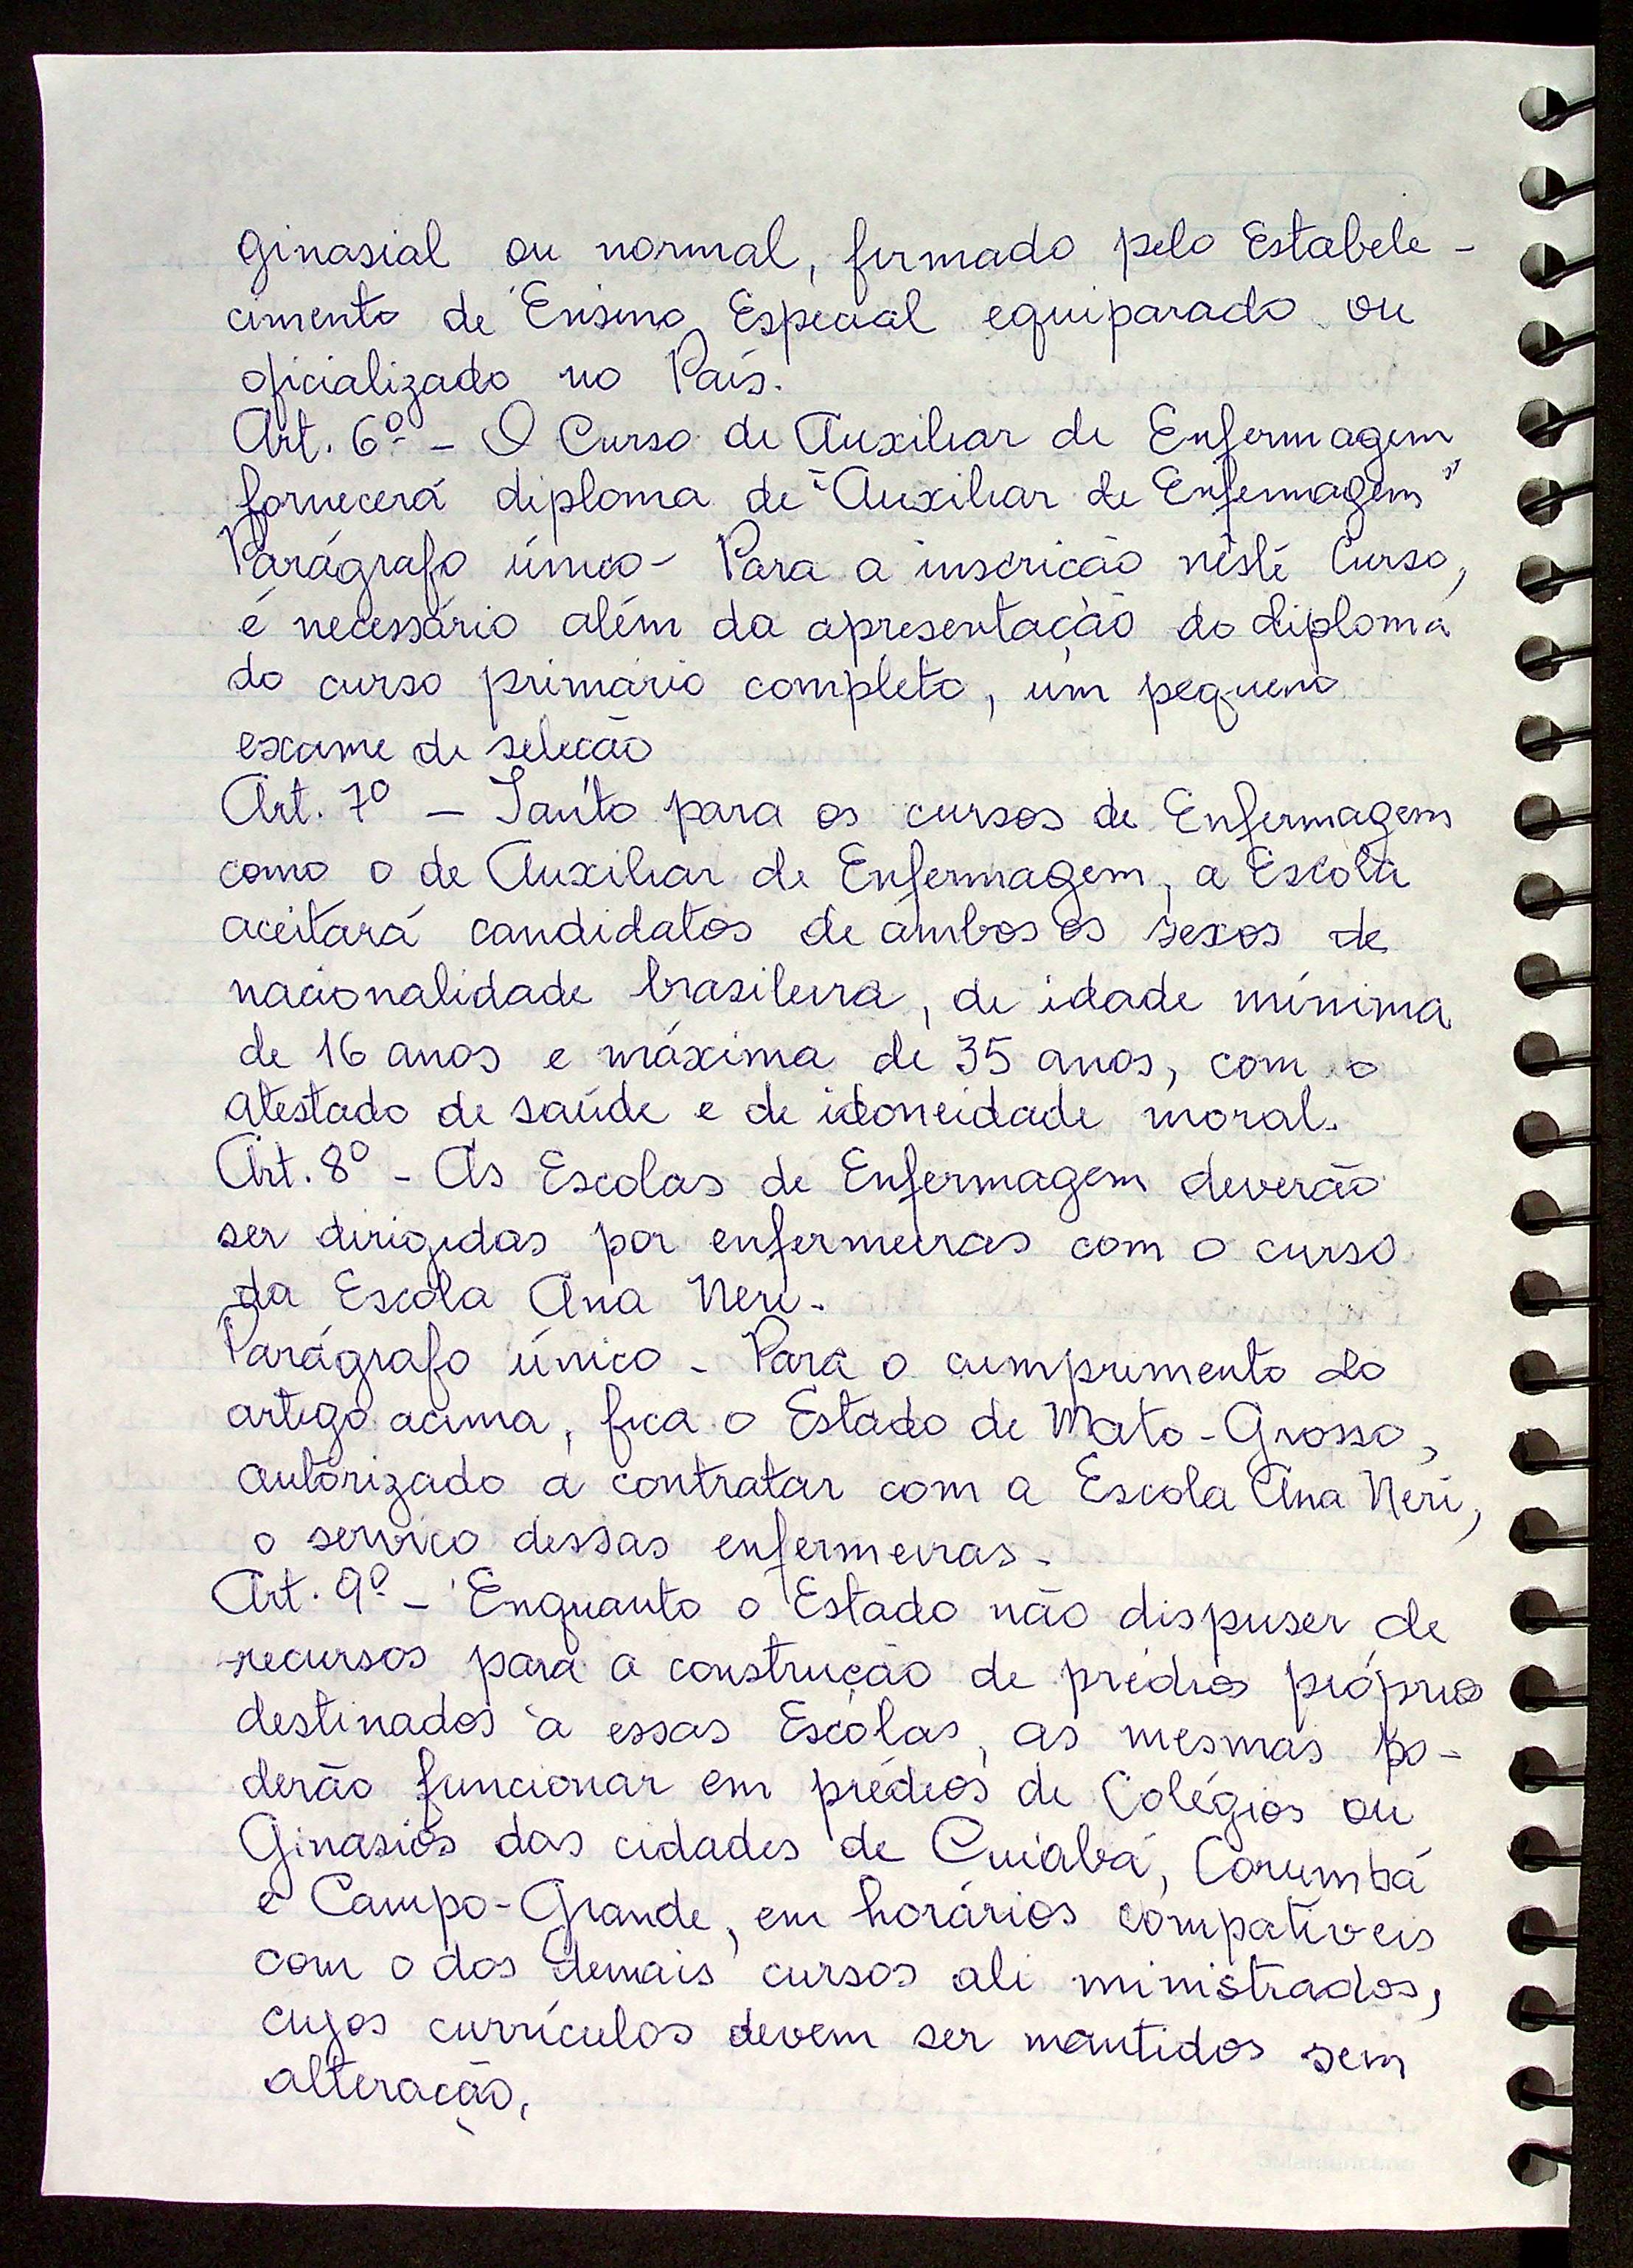 ginasial ou normal, firmado pelo Estabele-
cimento de Ensino Especial equiparado ou
oficializado no País.
Art. 6º - O Curso de Auxiliar de Enfermagem
fornecerá diploma de "Auxiliar de Enfermagem"
Parágrafo único - Para a inscricão nêste Curso,
é necessário além da apresentação do diploma
do curso primário completo, um pequeno
exame de selecão
Art. 7º - Tanto para os cursos de Enfermagem
como o de Auxiliar de Enfermagem, a Escola
aceitará candidatos de ambos os sexos de
nacionalidade brasileira, de idade mínima
de 16 anos e máxima de 35 anos, com o
atestado de saúde e de idoneidade moral.
Art. 8º - As Escolas de Enfermagem deverão
ser dirigidas por enfermeiras com o curso
da Escola Ana Neri.
Parágrafo único - Para o cumprimento do
artigo acima, fica o Estado de Mato-Grosso,
autorizado a contratar com a Escola Ana Neri,
o servico dessas enfermeiras.
Art. 9º - Enquanto o Estado não dispuser de
recursos para a construção de prédios próprios
destinados à essas Escolas, as mesmas po-
derão funcionar em prédios de Colégios ou
Ginasios das cidades de Cuiabá, Corumbá
e Campo-Grande, em horários compatíveis
com o dos demais cursos ali ministrados,
cujos currículos devem ser mantidos sem
alteração.